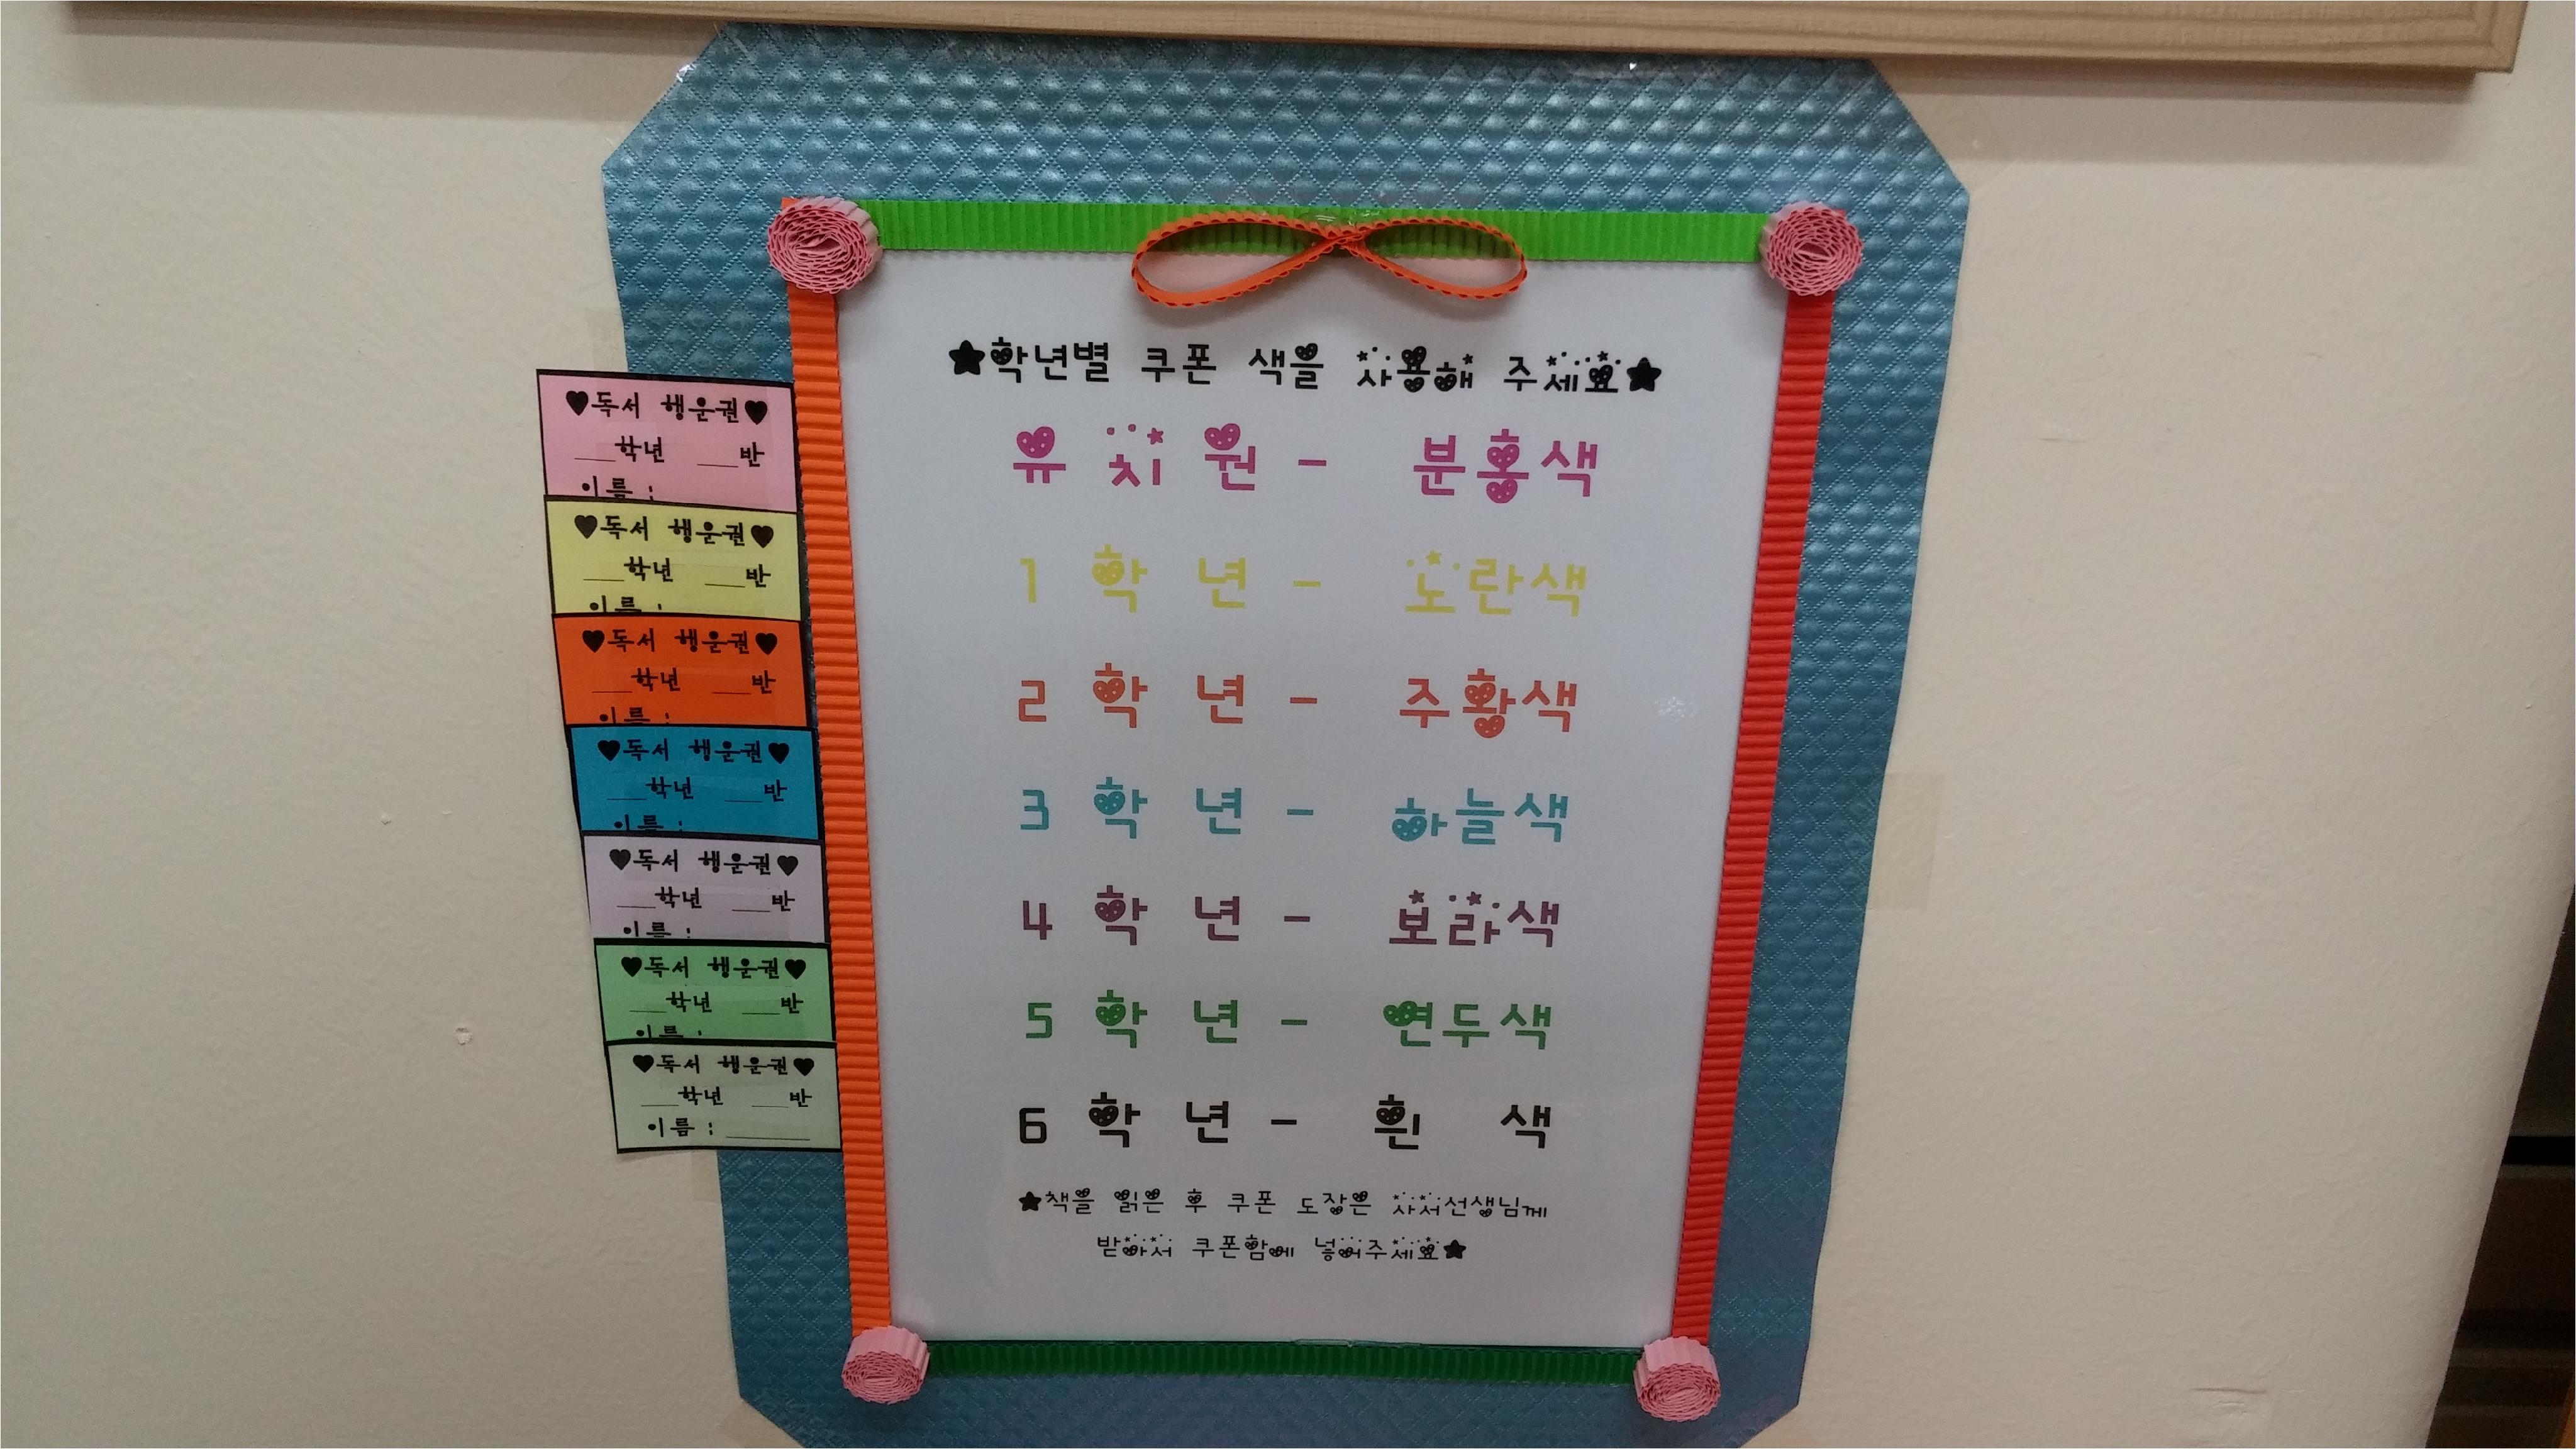 ★학년별 쿠폰 색을 사용해 주세요★
유 치 원 - 분홍색
1 학 년 - 노란색
2 학 년 - 주황색
3 학 년 - 하늘색
4 학 년 - 보라색
5 학 년 - 연두색
6 학 년 - 흰 색
★책을 읽은 후 쿠폰 도장은 사서선생님께
받아서 쿠폰함에 넣어주세요★
♥독서 행운권♥
___학년 ___반
이름 :
♥독서 행운권♥
___학년 ___반
이름 :
♥독서 행운권♥
___학년 ___반
이름 :
♥독서 행운권♥
___학년 ___반
이름 :
♥독서 행운권♥
___학년 ___반
이름 :
♥독서 행운권♥
___학년 ___반
이름 :
♥독서 행운권♥
___학년 ___반
이름 : _______